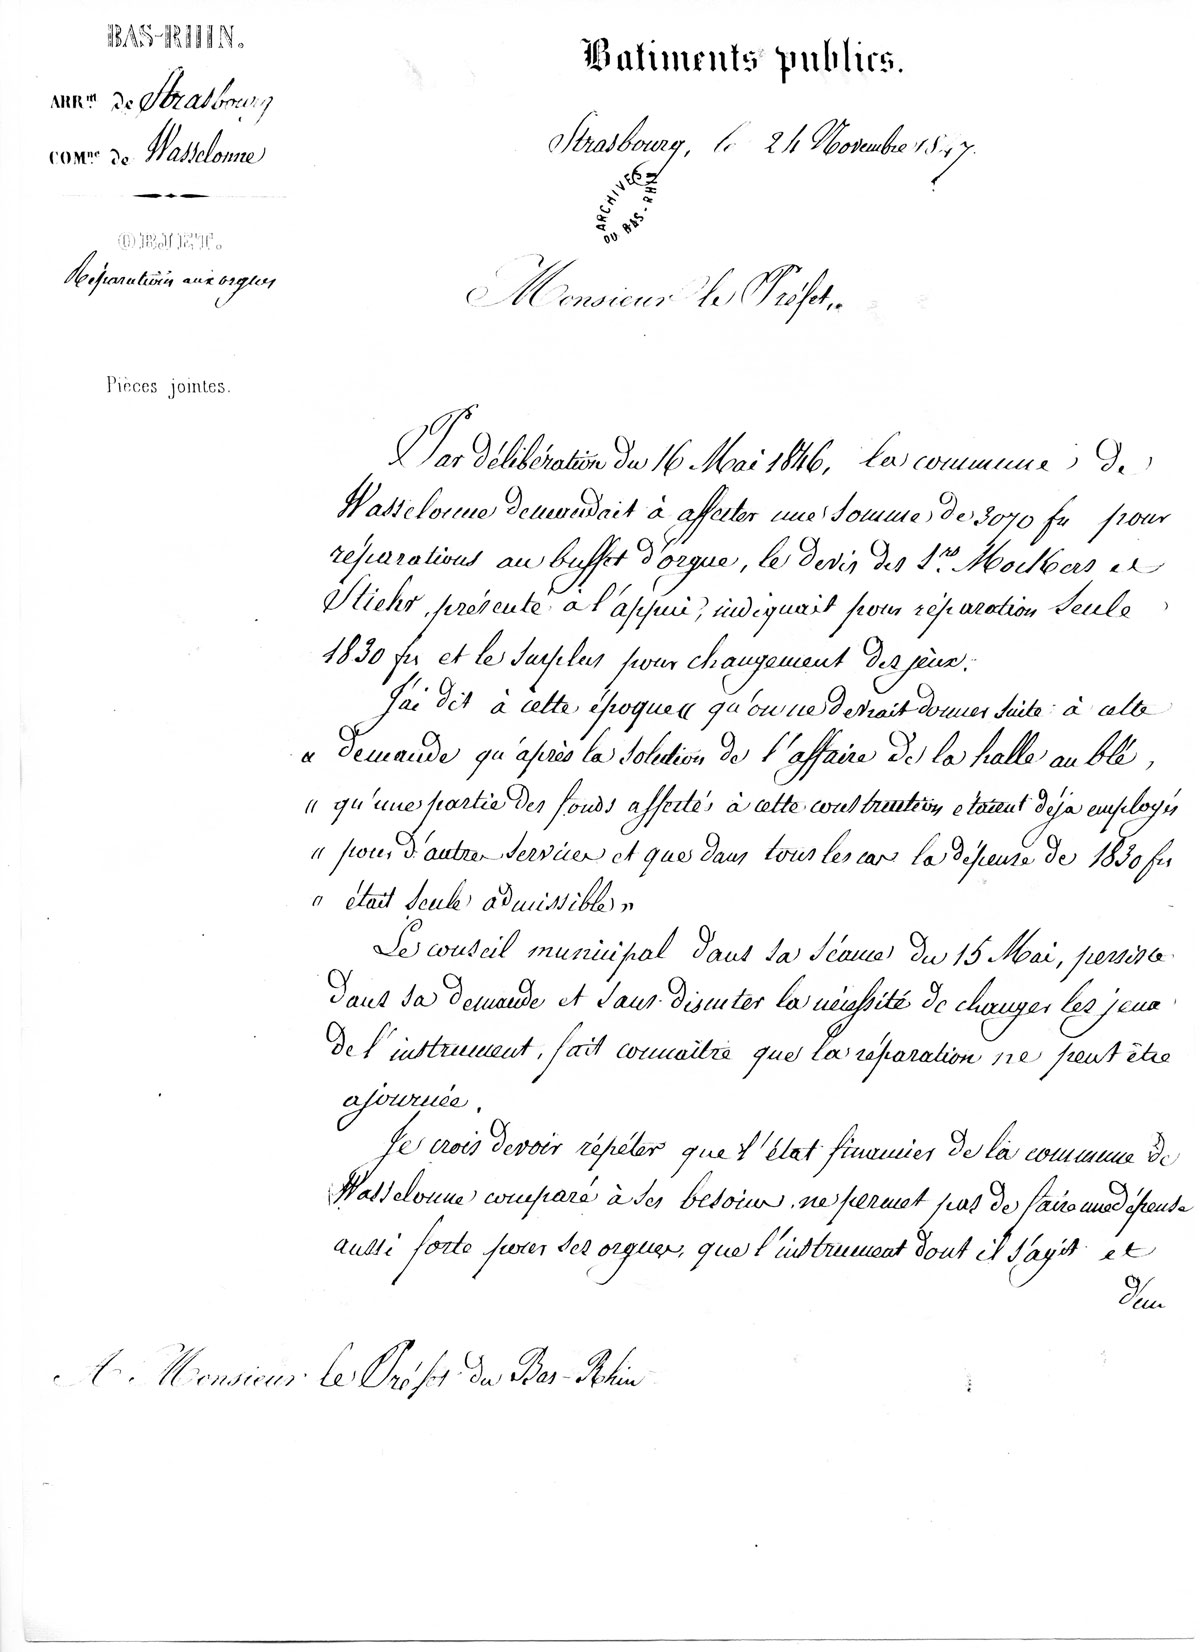 BAS-RHIN.
Batiments publics.
ARR.nt de Strasbourg
Strasbourg, le 24 Novembre 1847.
COM.ne de Wasselonne
ARCHIVES
DU BAS-RHIN
OBJET.
Réparations aux orgues
Monsieur le Préfet,
Pièces jointes.
Par délibération du 16 Mai 1846, la commune de
Wasselonne demandait à affecter une somme de 3070 frs pour
réparations au buffet d'orgue, le devis des Srs Mockers et
Stiehr, présenté à l'appui, indiquait pour réparation seule
1830 frs et le surplus pour changement des jeux.
J'ai dit à cette époque « qu'on ne devrait donner suite à cette
« demande qu'après la solution de l'affaire de la halle au blé,
« qu'une partie des fonds affectés à cette construction étaient déjà employés
« pour d'autres services et que dans tous les cas la dépense de 1830 frs
« était seule admissible »
Le conseil municipal dans sa séance du 15 Mai, persiste
dans sa demande et sans discuter la nécessité de changer les jeux
de l'instrument, fait connaître que la réparation ne peut être
ajournée.
Je crois devoir répéter que l'état financier de la commune de
Wasselonne comparé à ses besoins, ne permet pas de faire une dépense
aussi forte pour ses orgues, que l'instrument dont il s'agit et
d'un
A Monsieur le Préfet du Bas-Rhin